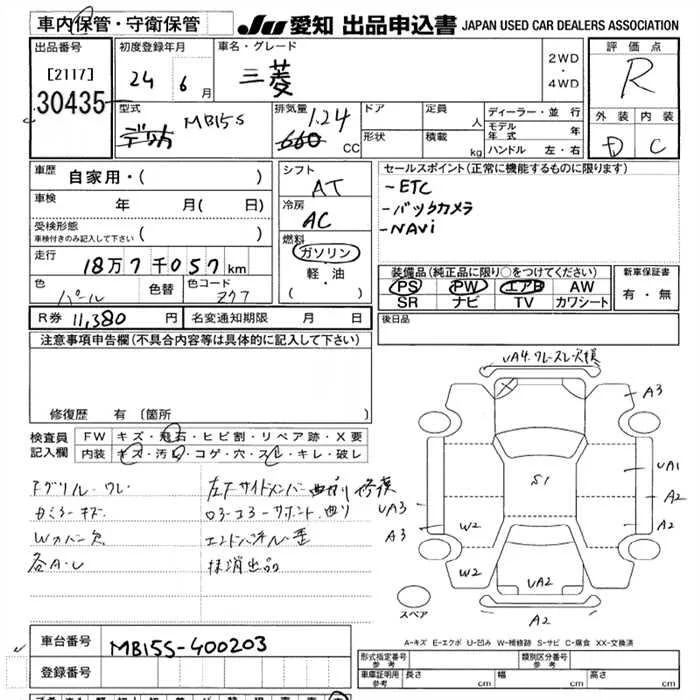 車内保管・守衛保管
JU 愛知 出品申込書 JAPAN USED CAR DEALERS ASSOCIATION
出品番号
[2117]
30435
初度登録年月
24 6 月
車名・グレード
三菱
2WD
・
4WD
評価点
R
外装 内装
D C
型式
デリカ MB15S
排気量
1.24
660 CC
ドア
形状
定員 人
積載 kg
ディーラー・並行
モデル年式 年
ハンドル 左・右
車歴 自家用・( )
車検 年 月( 日)
受検形態
車検付きのみ記入して下さい ( )
走行
18万7千057km
色 パール
色替
色コード ZQ7
シフト
AT
冷房
AC
燃料
ガソリン
軽・油
( )
セールスポイント(正常に機能するものに限ります)
-ETC
-バックカメラ
-NAVi
装備品(純正品に限り○をつけてください)
PS PW エアB AW
SR ナビ TV カワシート
新車保証書
有・無
R券 11,380 円
名変通知期限 月 日
後日品
注意事項申告欄(不具合内容等は具体的に記入して下さい)
修復歴 有 [箇所
検査員記入欄
FW キズ・飛石・ヒビ割・リペア跡・X要
内装 キズ・汚れ・コゲ・穴・スレ・キレ・破レ
Fグリル-ワレ
カミラーキズ
Wカバー欠
各A・U
左Fサイドメンバー曲り修複
ロアーコアーサポート曲り
エンドパネル歪
抹消出品
A3
UA1
A2
A2
S1
UA3
A3
W2
W2
UA2
A2
スペア
A-キズ E-エクボ U-凹み W-補修跡 S-サビ C-腐食 XX-交換済
車台番号 MB15S-400203
登録番号
形式指定番号
参考
類別区分番号
参考
車庫証明用
参考
長さ cm 幅 cm 高さ cm